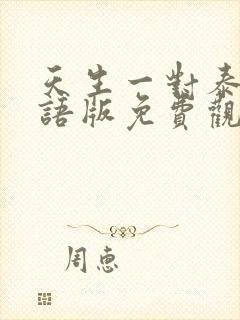 天生一對泰
語版免費觀
周惠